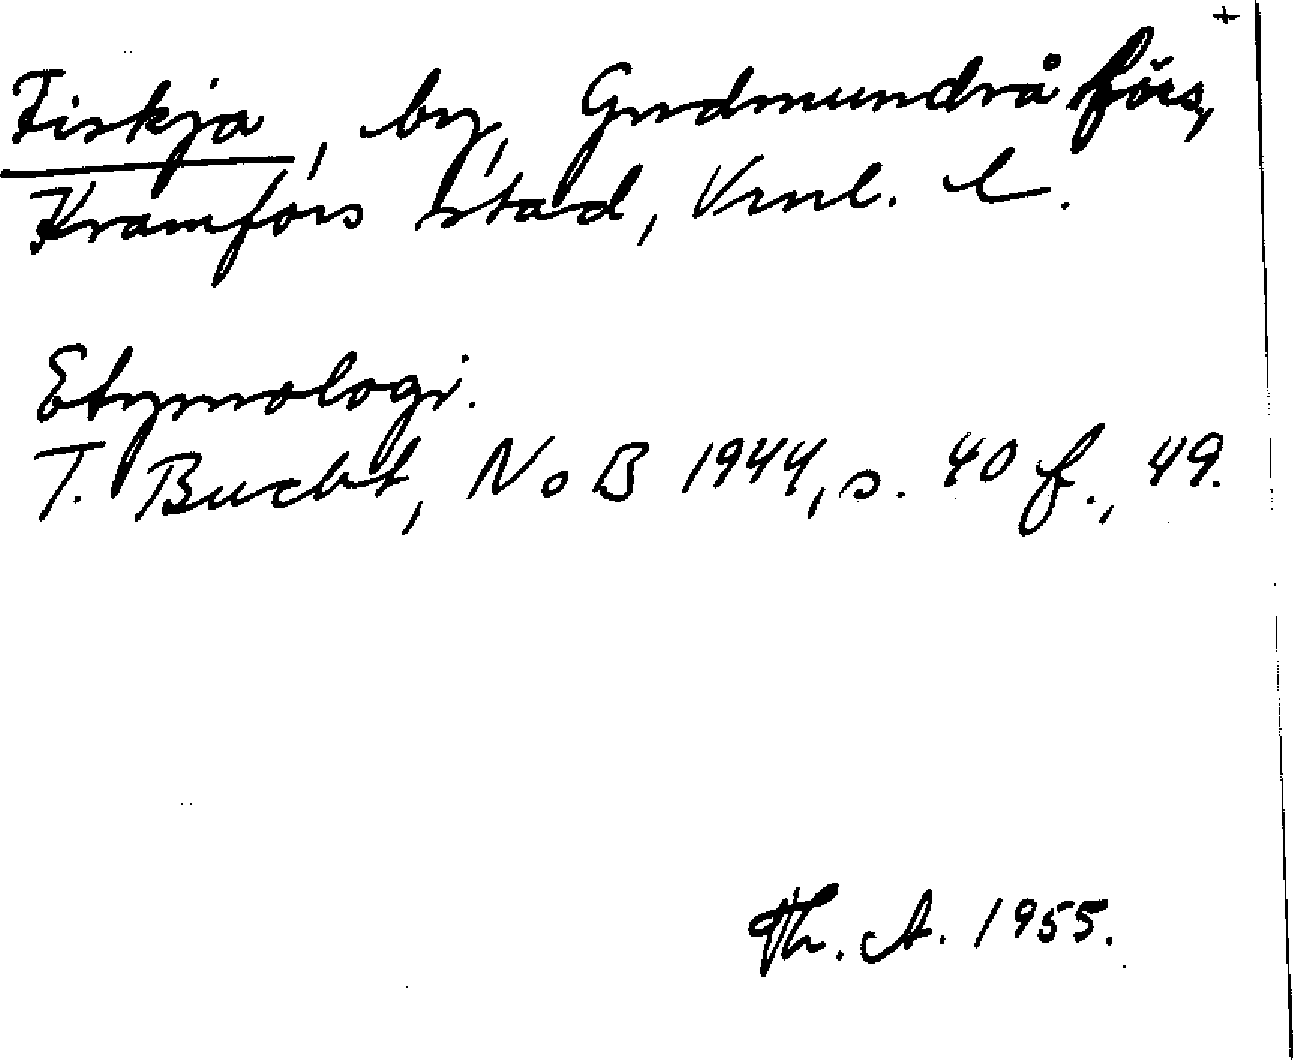 +
Fiskja, by, Gudmundrå förs,
Kramfors stad, Vrnl. l.
Etymologi.
T. Bucht, NoB 1944, s. 40 f., 49.
Th. A. 1955.